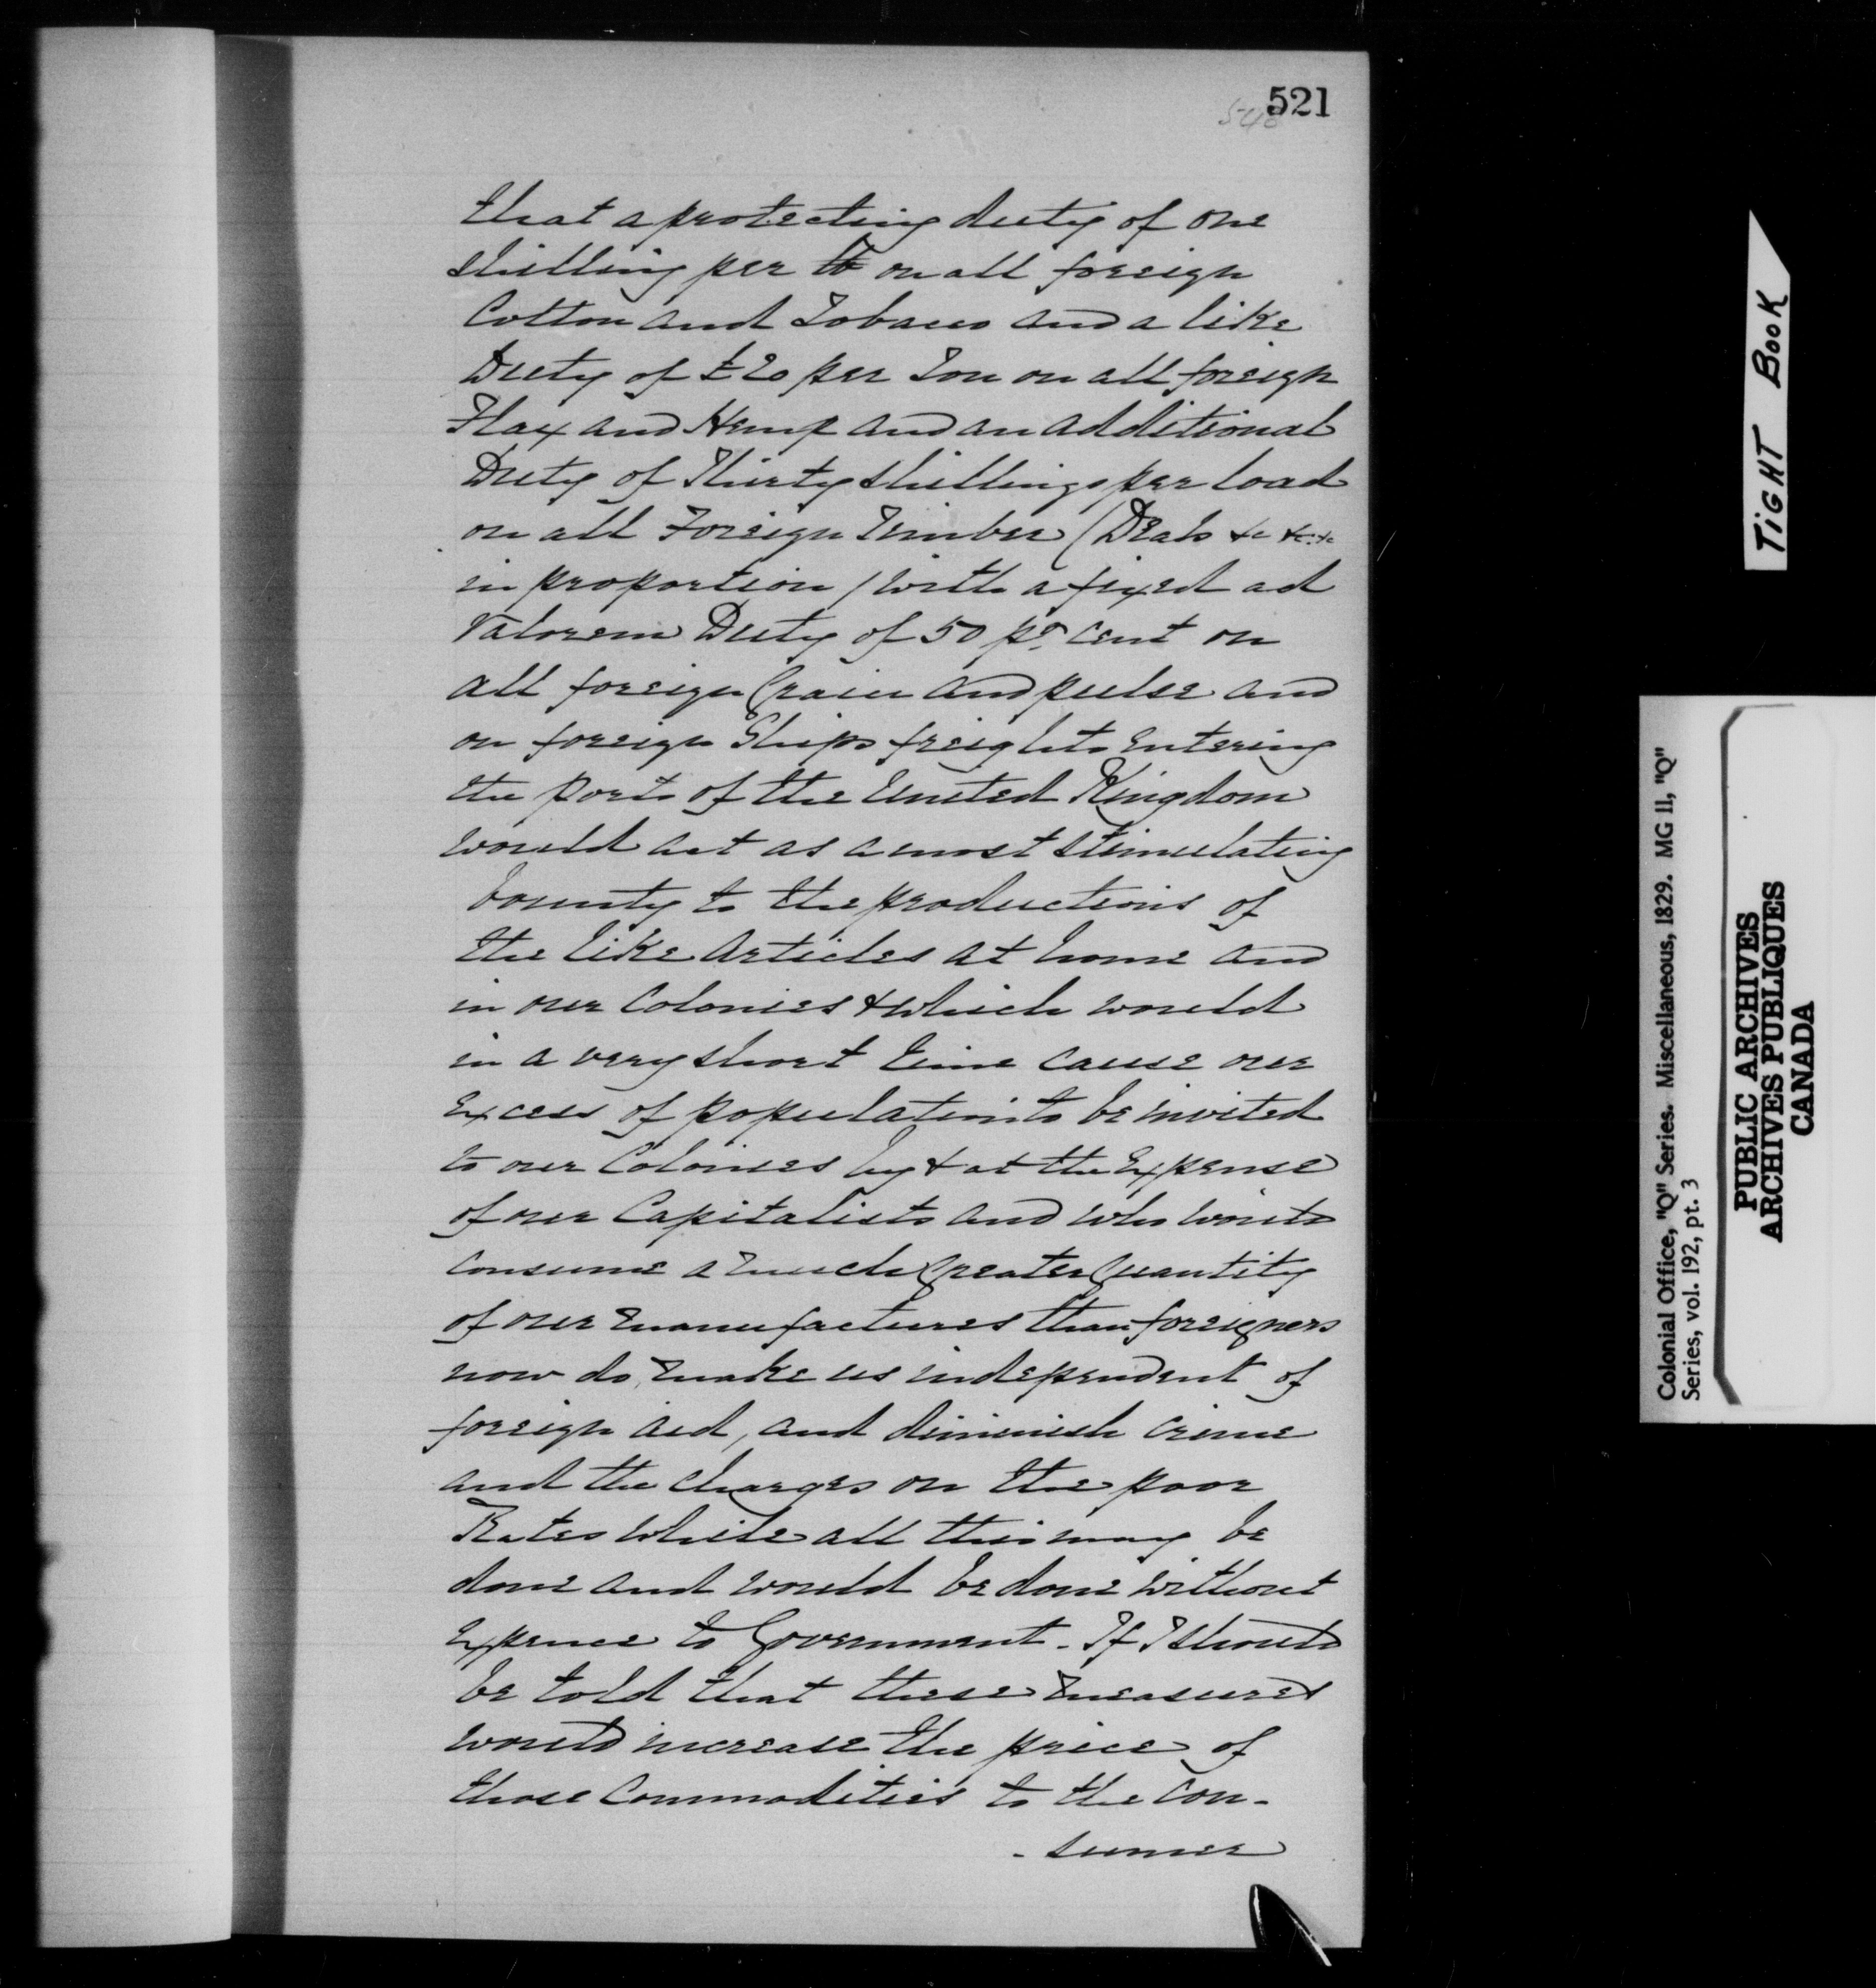 521
548
that a protecting duty of one
shilling per lb on all foreign
Cotton and Tobacco and a like
Duty of £20 per Ton on all foreign
Flax and Hemp and an additional
Duty of Thirty shillings per load
on all Foreign Timber (Deals &c &c &c
in proportion) with a fixed ad
Valorem Duty of 50 pr. cent on
all foreign Grain and pulse and
on foreign Ships freights entering
the ports of the United Kingdom
would act as a most stimulating
bounty to the productions of
the like articles at home and
in our Colonies & which would
in a very short time cause our
excess of population to be invited
to our Colonies by & at the Expense
of our Capitalists and who would
consume a much Greater Quantity
of our manufactures than foreigners
now do, make us independent of
foreign aid, and diminish crime
and the charges on the poor
Rates while all this may be
done and would be done without
expence to Government. If I should
be told that these measures
would increase the price of
those Commodities to the con-
- sumer
TIGHT BOOK
Colonial Office, "Q" Series. Miscellaneous, 1829. MG 11, "Q"
Series, vol. 192, pt. 3
PUBLIC ARCHIVES
ARCHIVES PUBLIQUES
CANADA